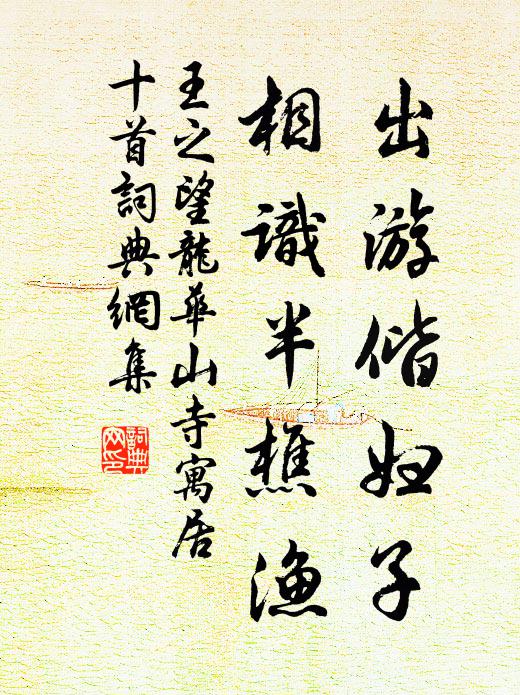 出游偕妇子
相識半樵漁
王之望龍華山寺寓居
十首詞典網集
詞典
网印